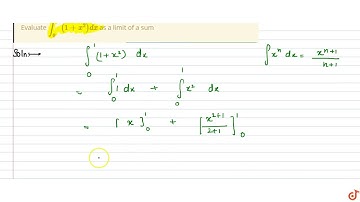 Evaluate ∫₀¹ (1 + x²)dx as a limit of a sum
Soln:→ ∫₀¹ (1+x²) dx ∫ xⁿ dx = xⁿ⁺¹/n+1
= ∫₀¹ 1 dx + ∫₀¹ x² dx
= [x]₀¹ + [x²⁺¹/2+1]₀¹
doubtnut